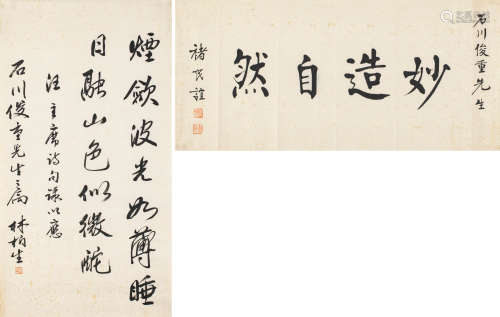 煙斂波光如薄睡
日融山色似微酡
汪主席詩句録以應
石川俊重先生之屬 林柏生
石川俊重先生
妙造自然
褚民誼